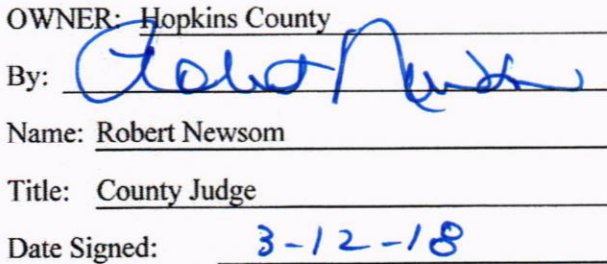 OWNER: Hopkins County
By: Robert Newsom
Name: Robert Newsom
Title: County Judge
Date Signed: 3-12-18